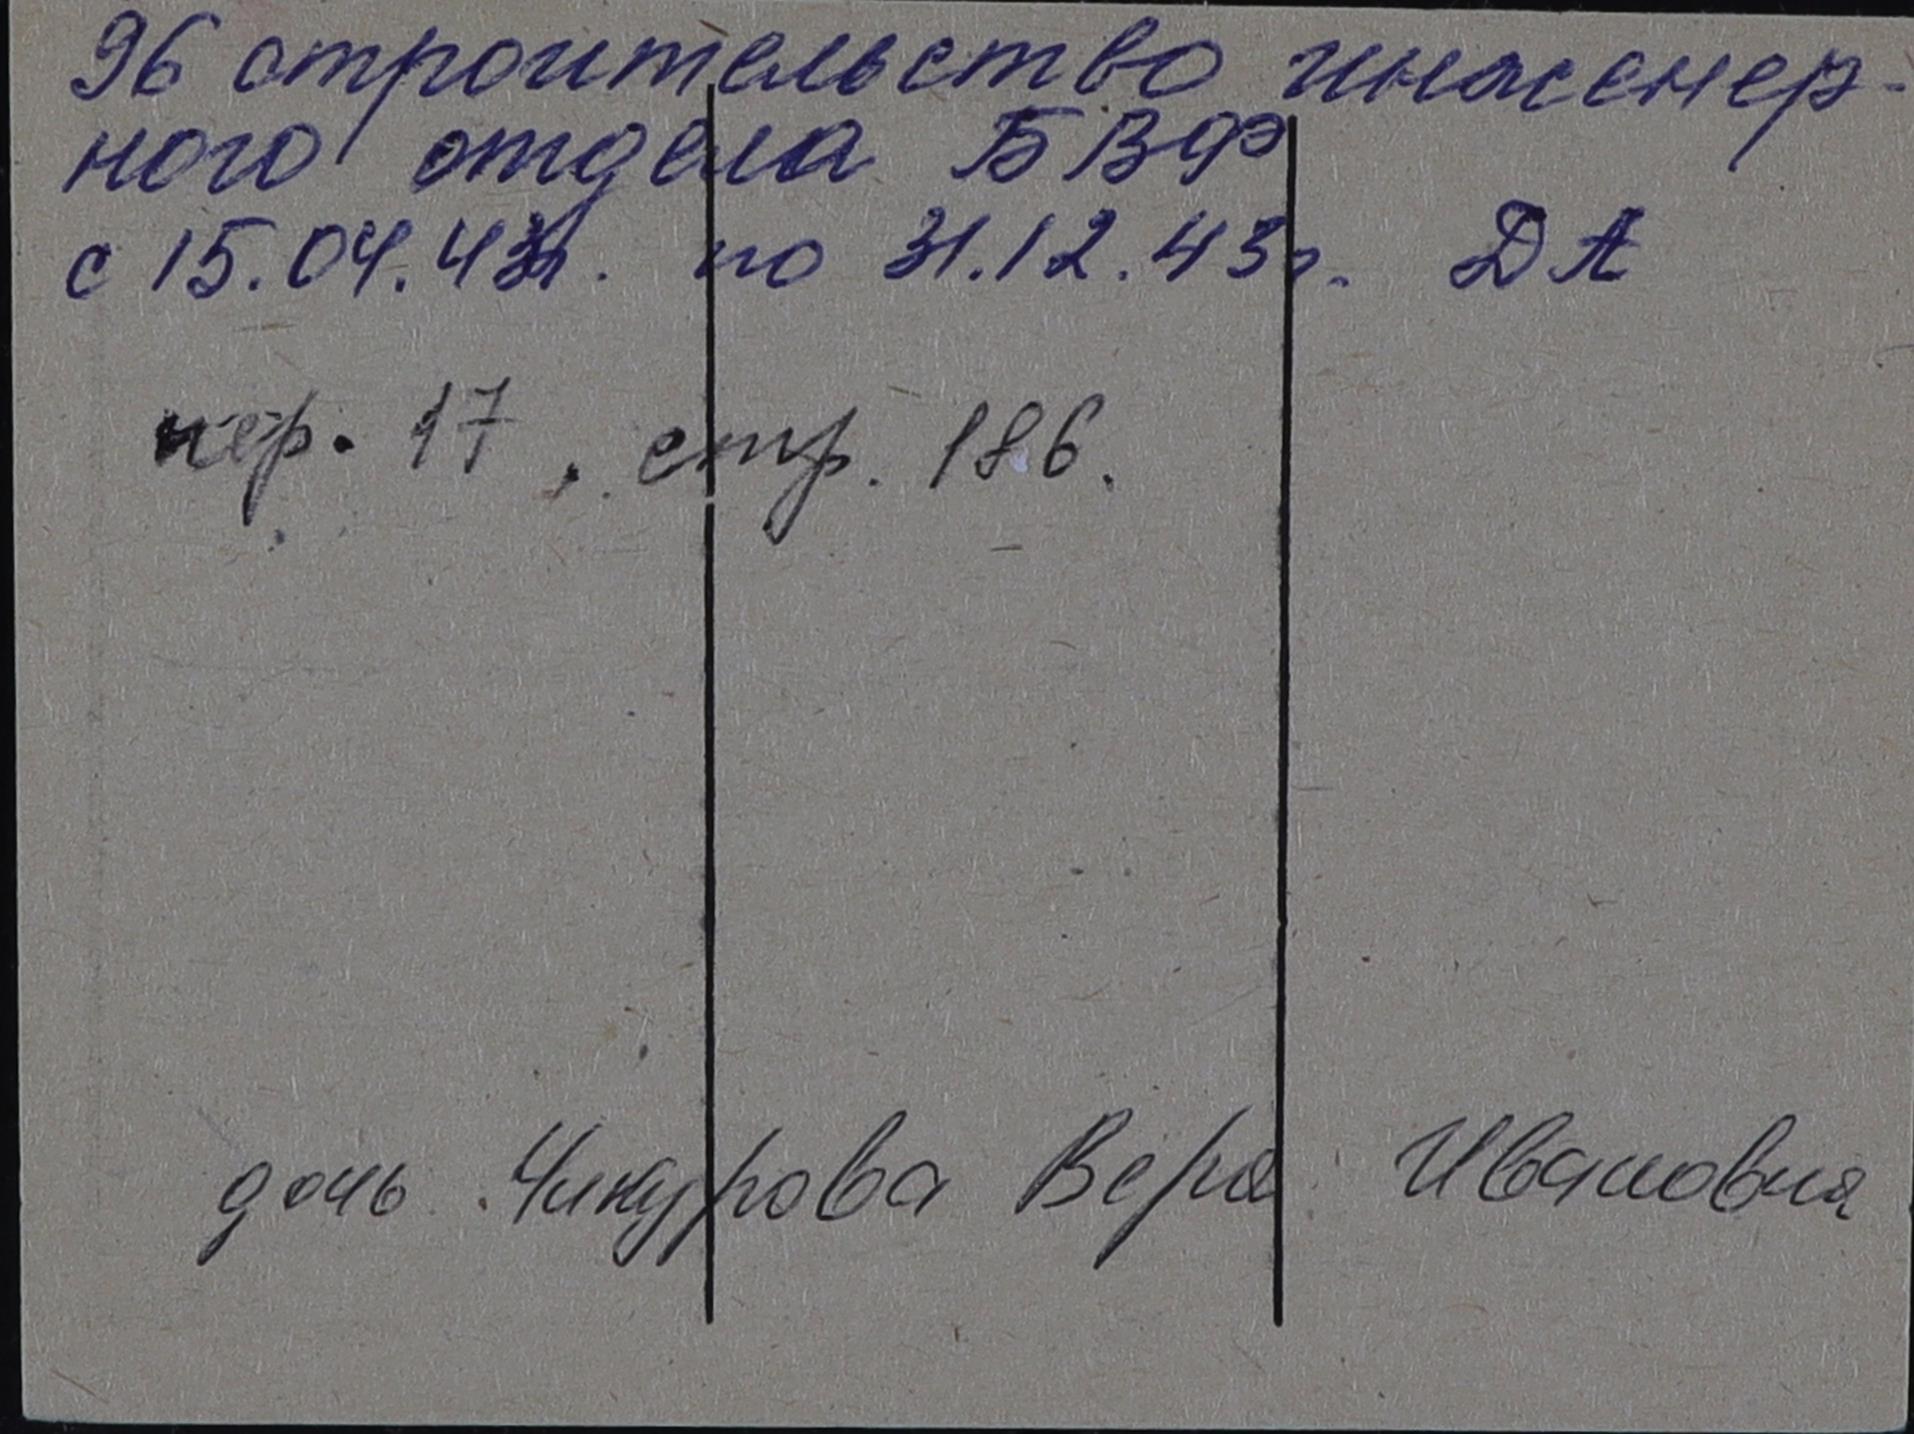 96 строительство инженер-
ного отдела БВФ
с 15.04.43г. по 31.12.43г. ДА
пер. 17, стр. 186.
дочь Чикурова Вера Ивановна